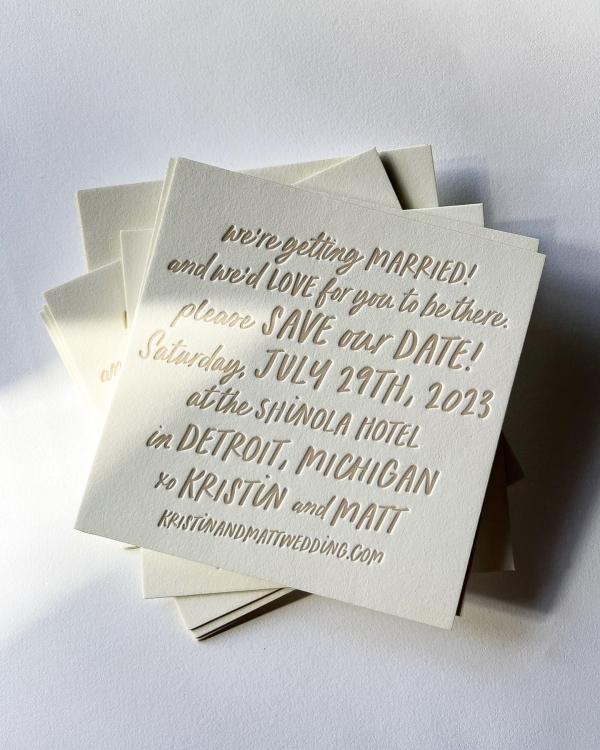 we're getting MARRIED!
and we'd LOVE for you to be there.
please SAVE our DATE!
Saturday, JULY 29TH, 2023
at the SHINOLA HOTEL
in DETROIT, MICHIGAN
xo KRISTIN and MATT
KRISTINANDMATTWEDDING.COM